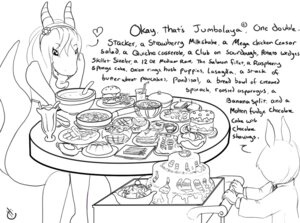 Okay, That's Jumbolaya, One double
Stacker, a Strawberry Milkshake, a Mega chicken Ceasar
salad, a Quiche casserole, a Club on Sourdough, Potato wedges
Skillet Sizzler, a 12 oz Medium Rare, The Salmon fillet, a Raspberry
Sponge cake, Onion rings, Hush Puppies, Lasagna, a stack of
butter Pancakes, a bread bowl of creamed
spinach, roasted asparagus, a
Banana Split, and a
Molten fudge Chocolate
Cake with
Chocolate
Shavings.